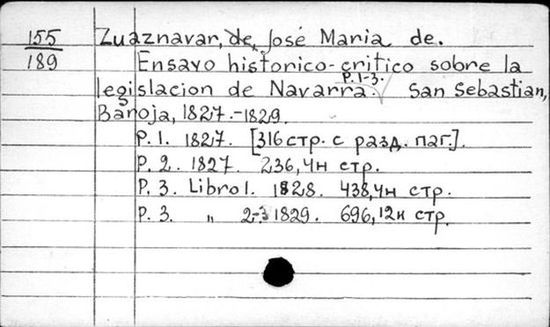 155 Zuaznavar, de, José Maria de.
189 Ensayo historico-critico sobre la
legislacion de Navarra. P. 1-3. San Sebastian,
Baroja, 1827.-1829.
P. 1. 1827. [316 стр. с разд. паг.].
P. 2. 1827. 236, 4н стр.
P. 3. Libro 1. 1828. 438, 4н стр.
P. 3. " 2-3 1829. 696, 12н стр.